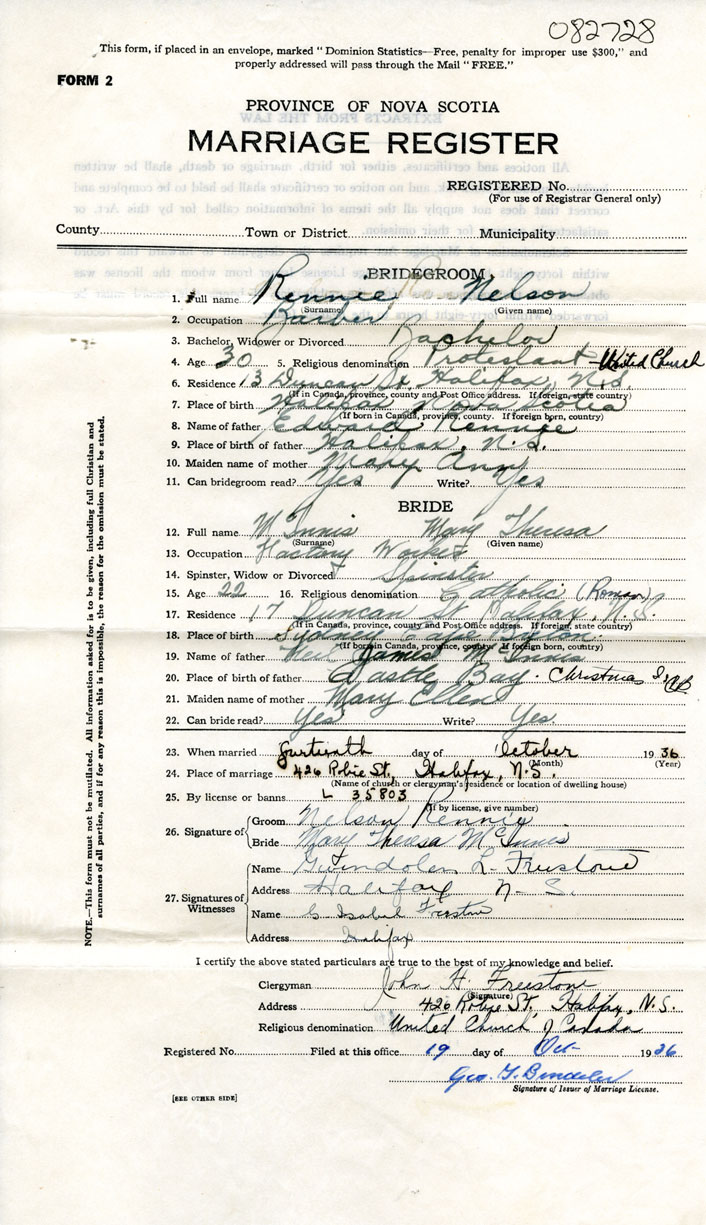 082728
This form, if placed in an envelope, marked "Dominion Statistics—Free, penalty for improper use $300," and
properly addressed will pass through the Mail "FREE."
FORM 2
PROVINCE OF NOVA SCOTIA
MARRIAGE REGISTER
REGISTERED No.
(For use of Registrar General only)
County Town or District Municipality
BRIDEGROOM
1. Full name Rennie Nelson
(Surname) (Given name)
2. Occupation Barber
3. Bachelor, Widower or Divorced Bachelor
4. Age 30 5. Religious denomination Protestant - United Church
6. Residence 13 Duncan St. Halifax, N.S.
(If in Canada, province, county and Post Office address. If foreign, state country)
7. Place of birth Halifax Nova Scotia
(If born in Canada, province, county. If foreign born, country)
8. Name of father Edward Rennie
9. Place of birth of father Halifax, N.S.
10. Maiden name of mother Mary Ann
11. Can bridegroom read? Yes Write? Yes
BRIDE
12. Full name McInnis Mary Theresa
(Surname) (Given name)
13. Occupation Factory Worker
14. Spinster, Widow or Divorced Spinster
15. Age 22 16. Religious denomination Catholic (Roman)
17. Residence 17 Duncan St Halifax, N.S.
(If in Canada, province, county and Post Office address. If foreign, state country)
18. Place of birth Sydney Cape Breton
(If born in Canada, province, county. If foreign born, country)
19. Name of father Neil James McInnis
20. Place of birth of father Castle Bay. Christmas I. CB
21. Maiden name of mother Mary Ellen
22. Can bride read? Yes Write? Yes
23. When married day of October 1936
(Month) (Year)
24. Place of marriage 426 Robie St., Halifax, N.S.
(Name of church or clergyman's residence or location of dwelling house)
25. By license or banns L 35803
(If by license, give number)
26. Signature of
Groom Nelson Renney
Bride Mary Theresa McInnis
27. Signatures of Witnesses
Name Gwendolen L. Freestone
Address Halifax N.S.
Name Isabel Freestone
Address Halifax
I certify the above stated particulars are true to the best of my knowledge and belief.
Clergyman John H. Freestone
(Signature)
Address 426 Robie St., Halifax, N.S.
Religious denomination United Church of Canada
Registered No. Filed at this office 19 day of Oct- 1936
Geo. T.
Signature of Issuer of Marriage License.
[SEE OTHER SIDE]
NOTE.—This form must not be mutilated. All information asked for is to be given, including full Christian and
surnames of all parties, and if for any reason this is impossible, the reason for the omission must be stated.